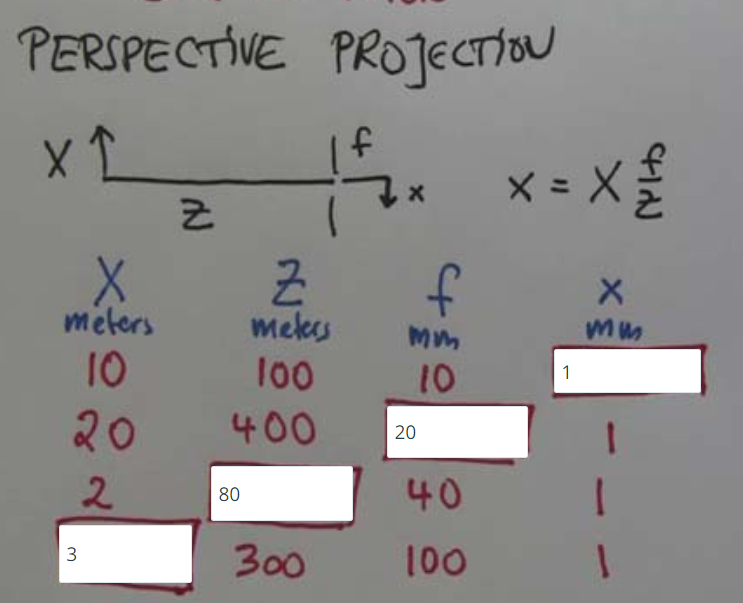 PERSPECTIVE PROJECTION
X f
Z x x = X f/Z
X Z f x
meters meters mm mm
10 100 10 1
20 400 20 1
2 80 40 1
3 300 100 1